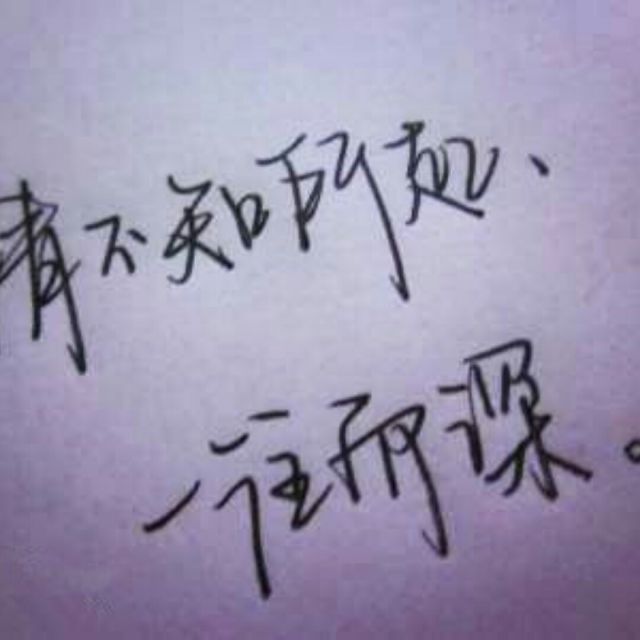 情不知所起、
一往而深。